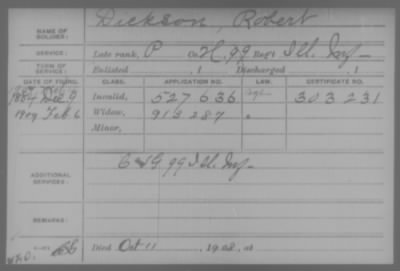 NAME OF SOLDIER: Dickson, Robert
SERVICE: Late rank, P Co. H, 99 Reg't Ill. Inf.
TERM OF SERVICE: Enlisted , 1 Discharged , 1
DATE OF FILING. CLASS. APPLICATION NO. LAW. CERTIFICATE NO.
1884 Dec 9 Invalid, 527 636 303 231
1909 Feb 6 Widow, 913 287
Minor,
ADDITIONAL SERVICES: G 99 Ill. Inf.
REMARKS:
Died Oct 11, 1908, at